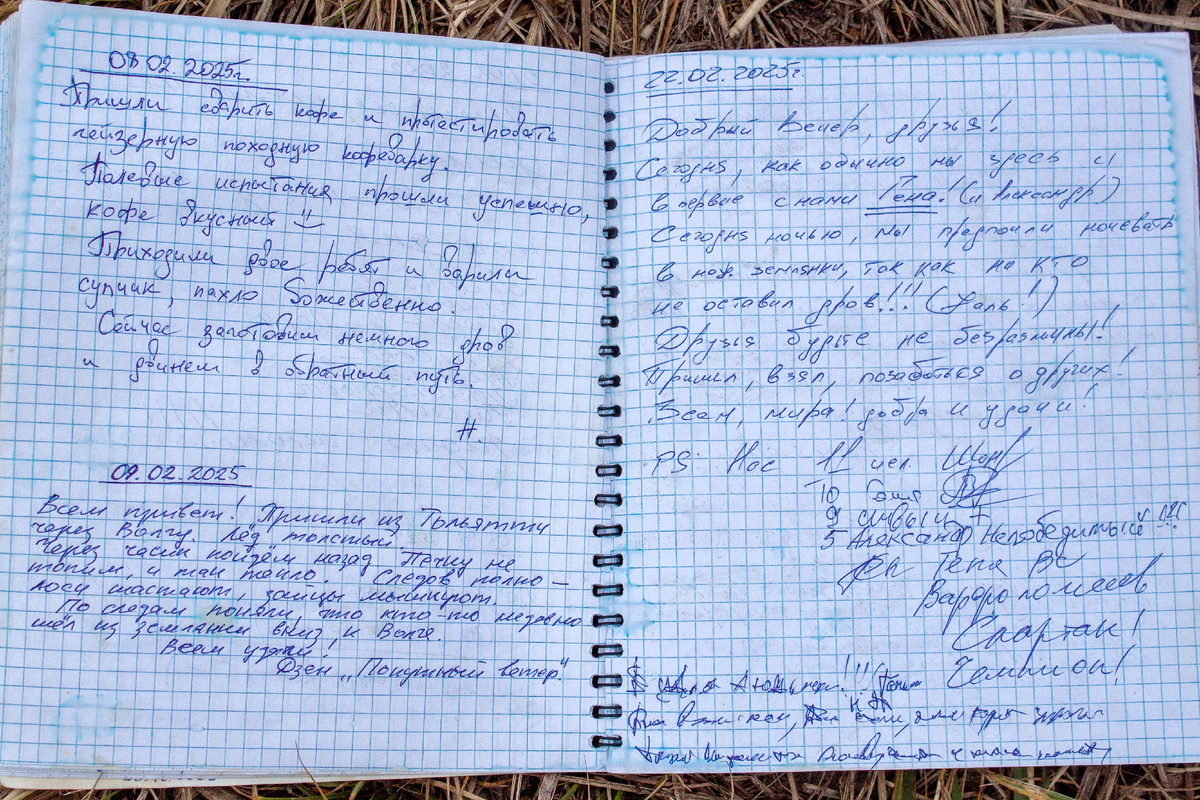 08.02.2025г.
Пришли сварить кофе и протестировать
гейзерную походную кофеварку.
Полевые испытания прошли успешно,
кофе вкусный
Приходили двое ребят и варили
супчик, пахло божественно.
Сейчас заготовим немного дров
и двинем в обратный путь.
Н.
09.02.2025
Всем привет! Пришли из Тольятти
через Волгу. Лёд толстый.
Через часик пойдём назад. Печку не
топим, и так тепло. Следов полно –
лоси шастают, зайцы мышкуют.
По следам поняли, что кто-то недавно
шёл из землянки вниз, к Волге.
Всем удачи!
Дзен „Попутный ветер".
22.02.2025г.
Добрый Вечер, друзья!
Сегодня, как обычно мы здесь и
впервые с нами Гена! (и Александр)
Сегодня ночью, мы предпочли ночевать
в ниж. землянки, так как ни кто
не оставил дров!!! (Жаль!)
Друзья будьте не безразличны!
Пришел, взял, позаботься о других!
Всем, мира! добра и удачи!
PS: Нас 11 чел.
10
9
5 Александр Непобедимый
Гена ВС
Варфоломеев
Спартак!
Чемпион!